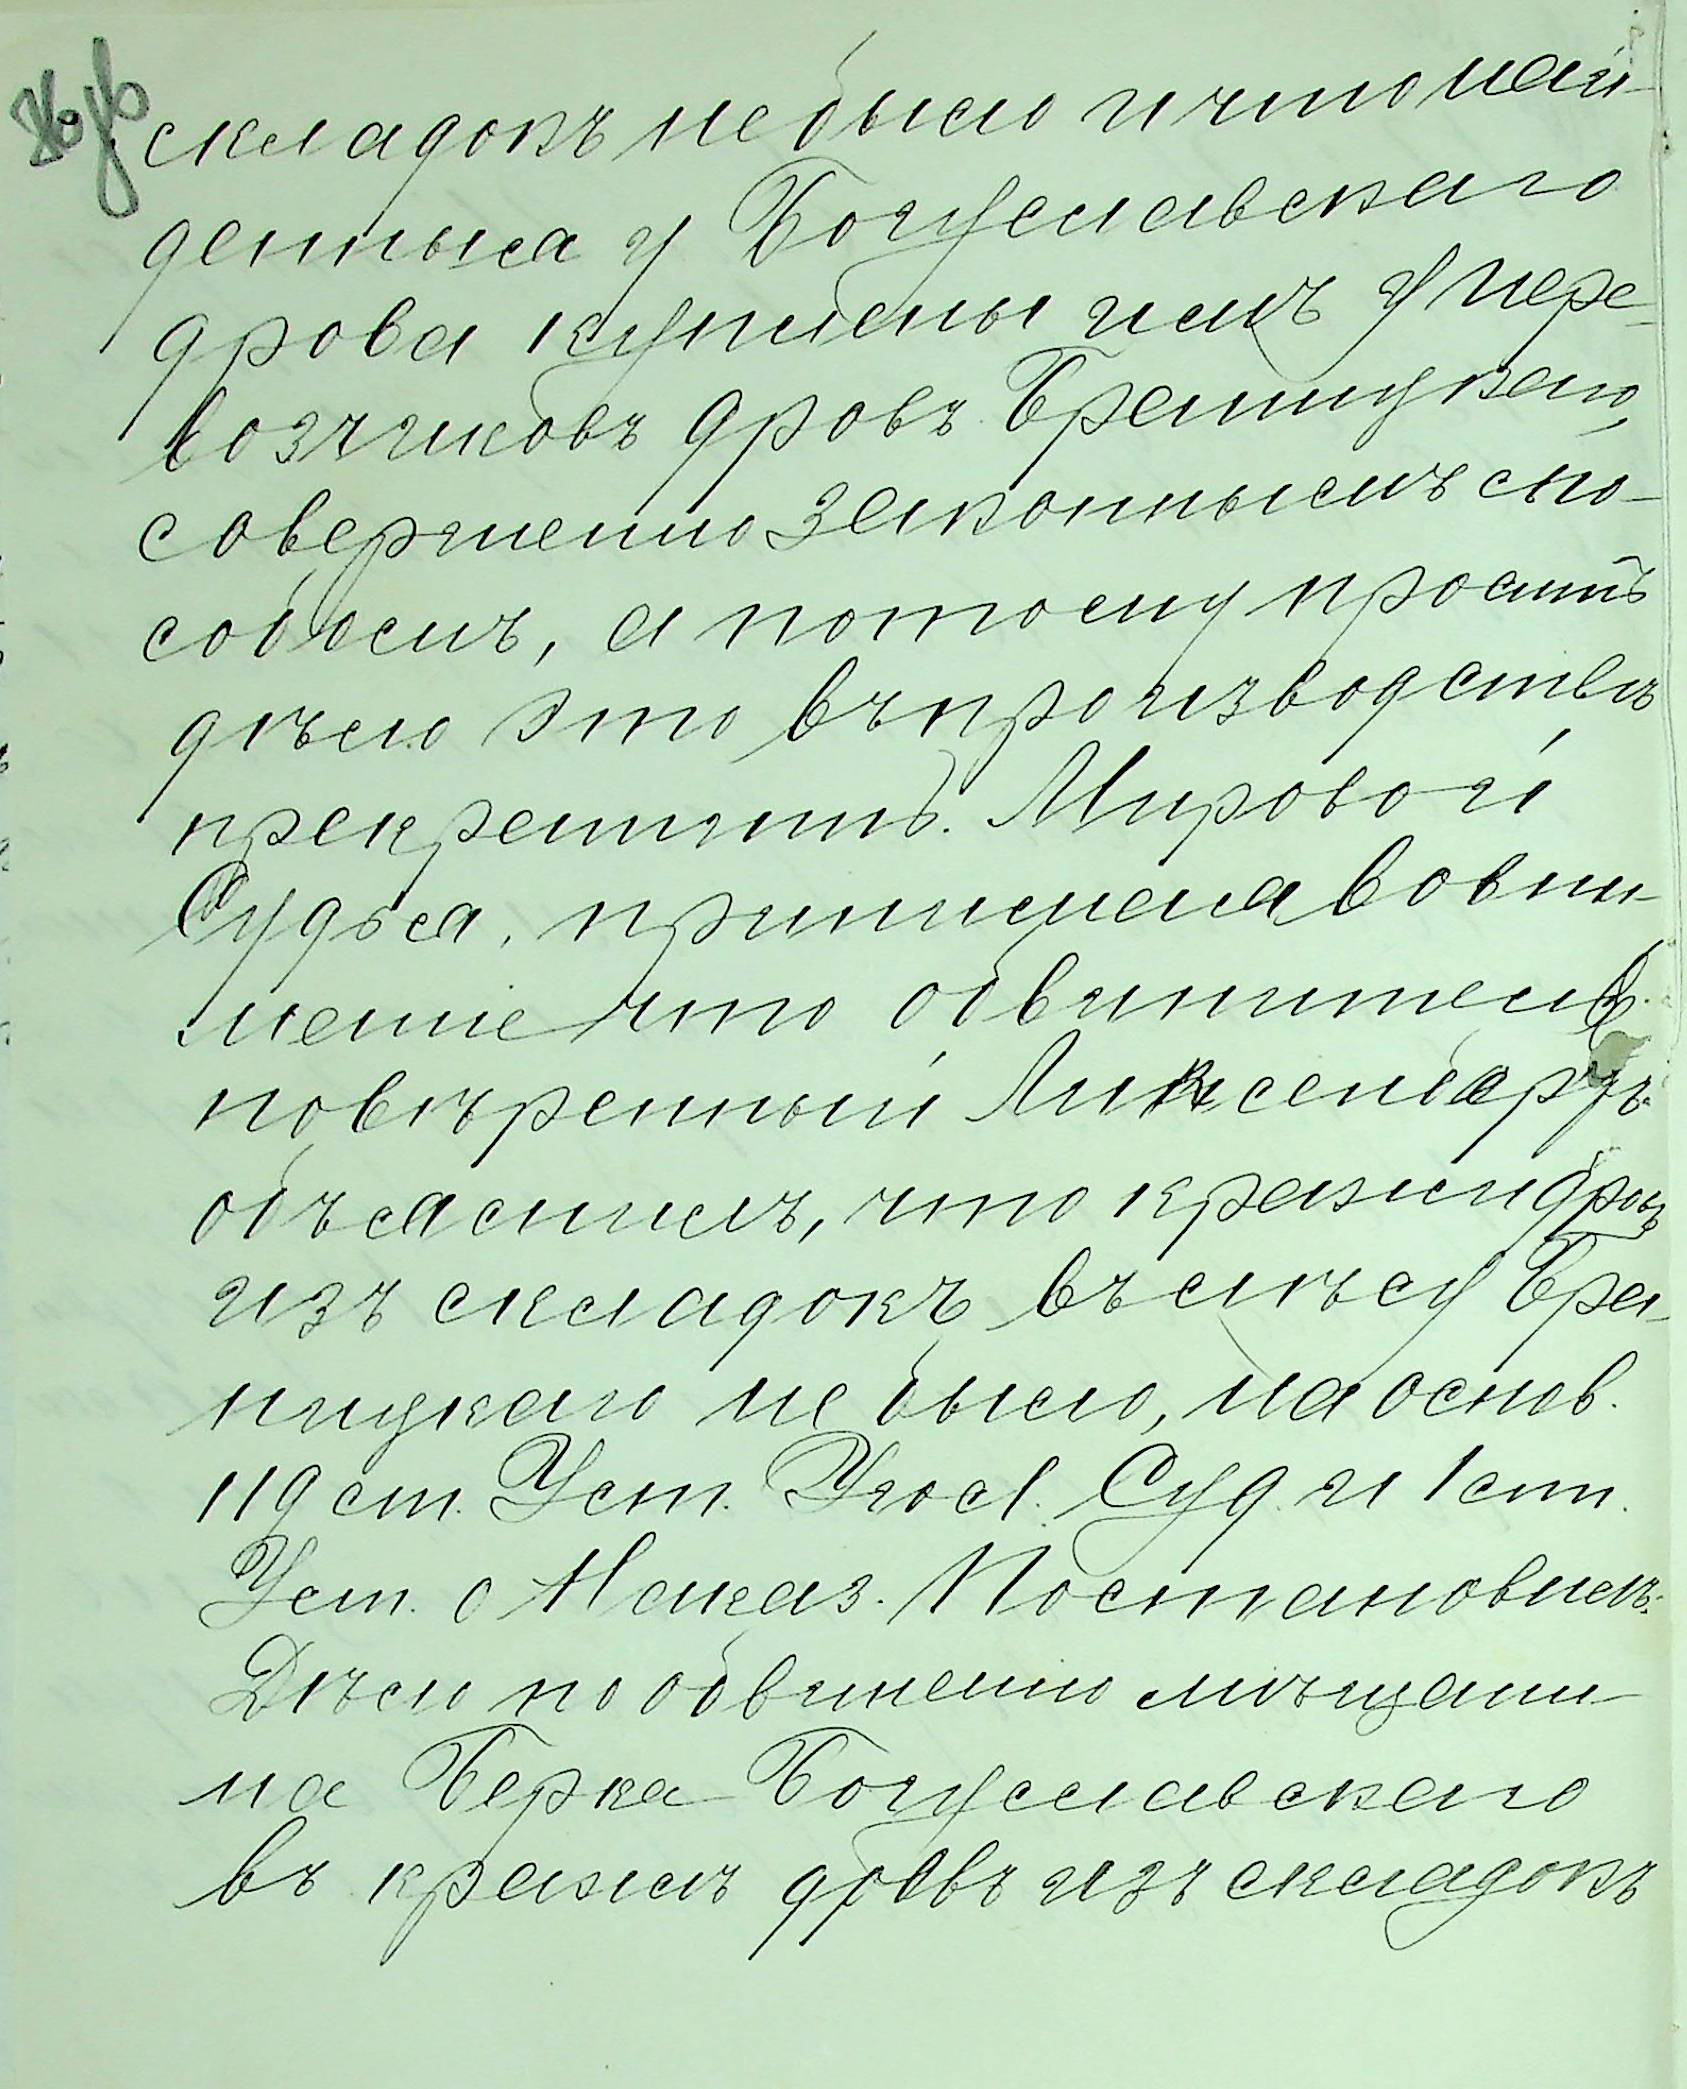 складокъ не было и что най-
деныя у Богуславскаго
дрова куплены имъ у пере-
возчиковъ дровъ Браницкаго,
совершенно законнымъ спо-
собомъ, а потому проситъ
дѣло это въ производствѣ
прекратить. Мировой
Судья, принимая во вни-
мание что обвинитель
повѣренный
объяснилъ, что кражи дровъ
изъ складокъ въ лѣсу Бра-
ницкаго не было, на основ.
119 ст. Уст. Угол. Суд. и 1 ст.
Уст. о Наказ. Постановилъ:
Дѣло по обвинению мѣщани-
на Берка Богуславскаго
въ кражѣ дровъ изъ складокъ